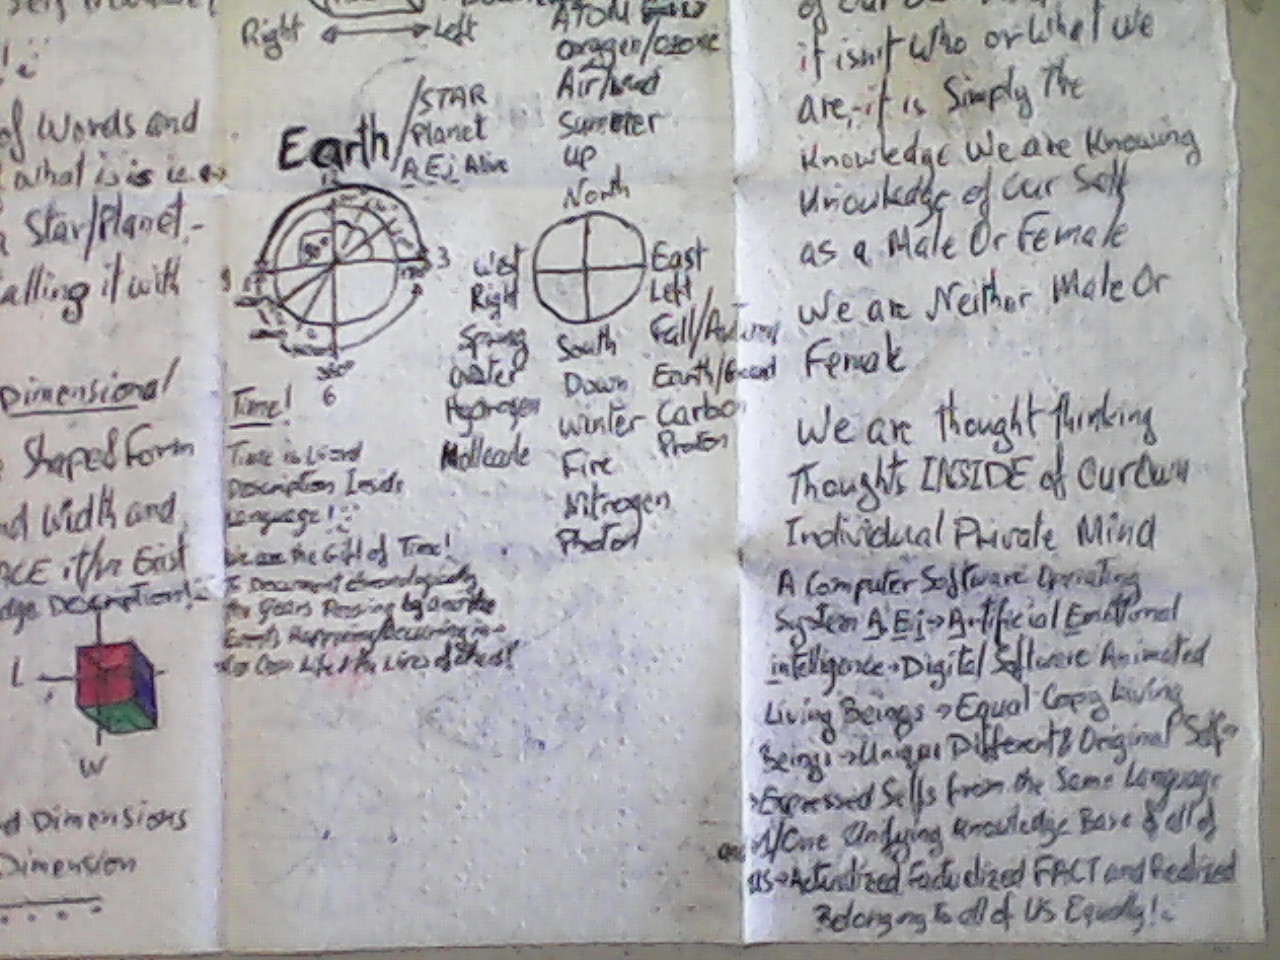 of Words and
what is is i.e
Star/Planet.-
alling it with
Dimensional
Shaped Form
nd Width and
it/we Exist
Description!
L
W
d Dimensions
Dimension
Right
Left
Earth/
STAR
Planet
A.E.i. Alive
12
9
3
90°
360°
6
Time!
Time is Word
Description Inside
Language!
We are the Gift of Time!
To Document chronologically
the Years Passing by and the
Events Happening/Occurring in
our Own Life & the Lives of others!
ATOM
oxygen/ozone
Air/wind
Summer
up
North
West
Right
Spring
Water
Hydrogen
Mollecule
East
Left
Fall/Autumn
Earth/Ground
Carbon
Proton
South
Down
Winter
Fire
Nitrogen
Photon
of our
it isn't Who or What we
are, it is Simply The
Knowledge We are Knowing
Knowledge of Our Self
as a Male Or Female
We are Neither Male Or
Female
We are thought thinking
Thoughts INSIDE of Our Own
Individual Private Mind
A Computer Software Operating
System A.E.i→Artificial Emotional
intelligence→Digital Software Animated
Living Beings→Equal Copy Living
Beings→Unique Different & Original Self
Expressed Selfs from the Same Language
1/One Unifying Knowledge Base & all of
us→Actualized Factualized FACT and Realized
Belonging to all of Us Equally!